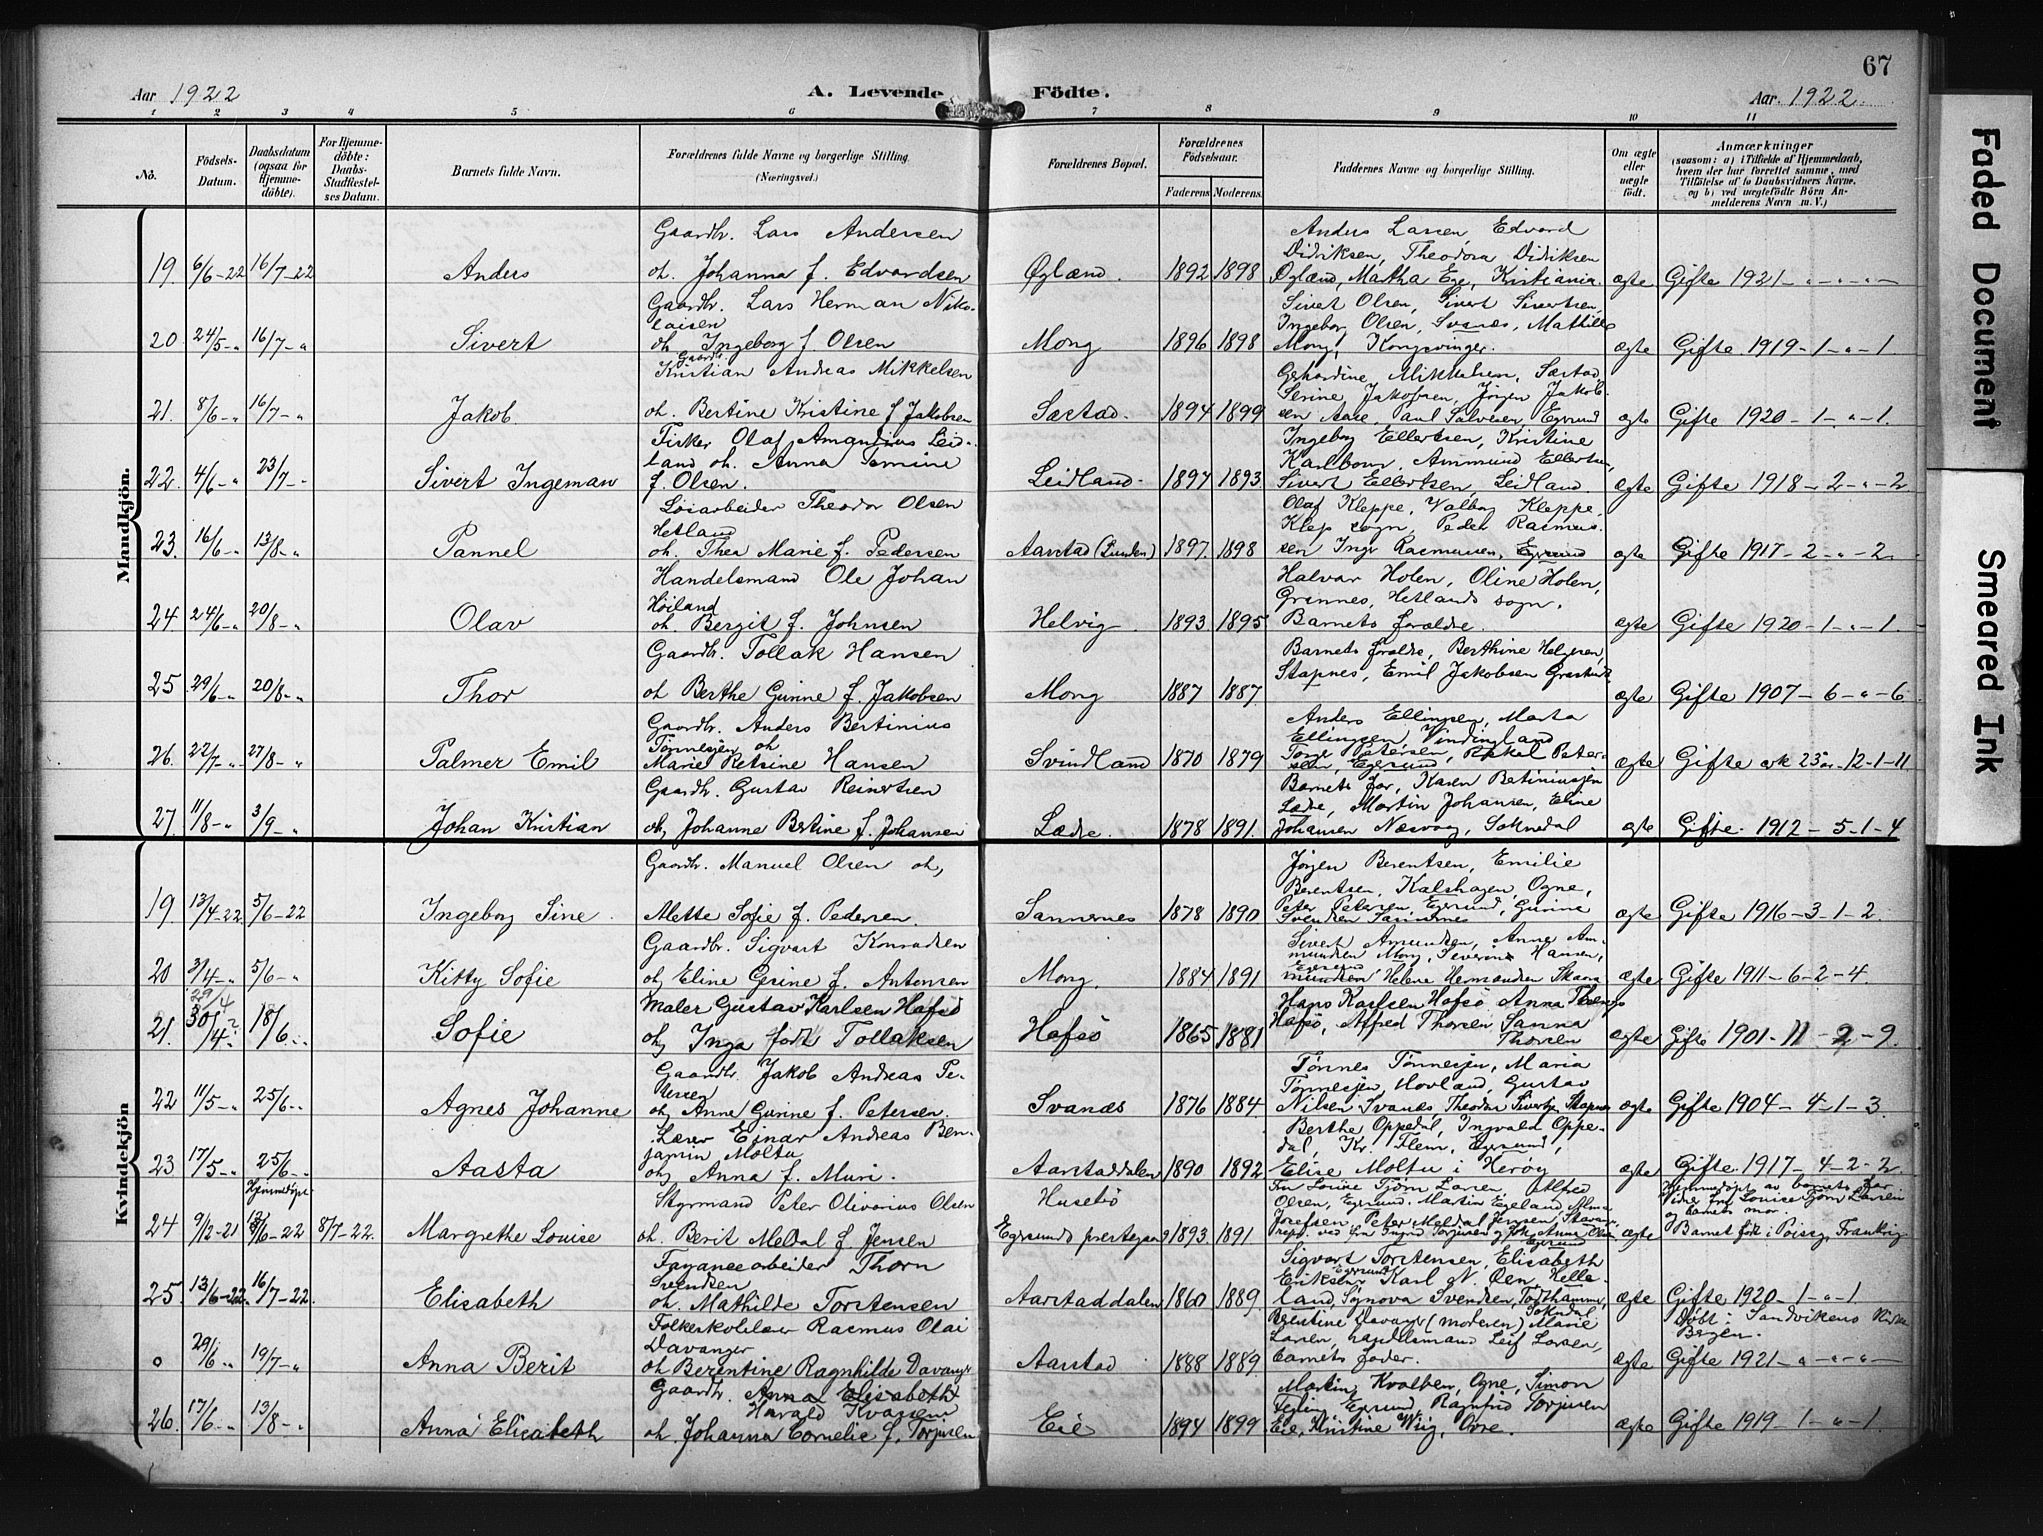 67
Aar 1922
A. Levende
Fødte.
Aar 1922
1 2 3 4 5 6 7 8 9 10 11
No.
Födsels-Datum.
Daabsdatum (ogsaa for Hjemme-döbte).
For Hjemme-döbte: Daabs-Stadfæstel-ses Datum.
Barnets fulde Navn.
Forældrenes fulde Navne og borgerlige Stilling. (Næringsvei.)
Forældrenes Bopæl.
Forældrenes Födselsaar.
Faderens Moderens.
Faddernes Navne og borgerlige Stilling.
Om ægte eller uægte født.
Anmærkninger
(saasom: a) i Tilfælde af Hjemmedaab, hvem der har forrettet samme, med Tilföielse af to Daabsvidners Navne, og b) ved uægtefödte Börn An-melderens Navn m. V.)
Mandkjön.
19. 6/6-22 16/7-22 Anders
Gaardbr. Lars Andersen
oh. Johanna f. Edvardsen
Øglænd. 1892 1898
Anders Larsen Edvard
Didriksen, Theodora Didriksen
Øglænd, Martha Ege, Kristiania.
ægte Gifte 1921 - " - " - " -
20 24/5-" 16/7-" Sivert
Gaardbr. Lars Herman Niko-
laisen
oh Ingeborg f Olsen
Mong 1896 1898
Sivert Olsen, Sivert Sivertsen,
Ingeborg Olsen, Svanes, Mathilde
Mong, Kongsvinger.
ægte Gifte 1919 - 1 - " - 1.
21. 8/6-" 16/7-" Jakob
Gaardbr.
Kristian Andreas Mikkelsen
oh. Bertine Kristine f Jakobsen
Sæstad. 1894 1899
Gehardine Mikkelsen, Sæstad
Serine Jakobsen, Jörgen Jakob-
sen Aase, Salvesen, Egrsund
ægte Gifte 1920 - 1 - " - 1.
22. 4/6-" 23/7-" Sivert Ingeman
Fisker Olaf Amandius Leid-
land oh. Anna Tomine
f. Olsen.
Leidland. 1897 1893
Ingeborg Ellertsen, Kristine
Karlsoen, Ammund Ellertsen,
Sivert Ellertsen, Leidland.
ægte Gifte 1918 - 2 - " - 2
23. 16/6-" 13/8-" Pannel
Løsarbeider Theodor Olsen
Hetland
oh. Thea Marie f. Pedersen
Aarstad (Lunden) 1897. 1898
Olaf Kleppe, Valborg Kleppe,
Klep sogn, Peder Rasmus-
sen Inger Rasmussen, Egrsund
ægte Gifte 1917 - 2 - " - 2.
24. 24/6-" 20/8-" Olav
Handelsmand Ole Johan
Höiland
oh. Bergit f. Johnsen
Helvig 1893 1895
Halvar Holen, Oline Holen,
Grannes, Hetlands sogn.
Barnets forældre.
ægte Gifte 1920 - 1 - " - 1.
25 29/6-" 20/8-" Thor
Gaardbr. Tollak Hansen
oh Berthe Gurine f. Jakobsen
Mong 1887 1887.
Barnets foraldre, Berthine Helgesen,
Stapnes, Emil Jakobsen
ægte Gifte 1907 - 6 - " - 6
26. 22/7-" 27/8-" Palmer Emil
Gaardbr. Anders Bertinius
Tönnesjen oh
Marie Retsine Hansen
Svindland 1870 1879
Anders Ellingsen, Marta
Ellingsen Vindingland
Petersen, Rakel Peter-
sen, Egrsund
ægte Gifte ark 23 år - 12 - 1 - 11
27. 11/8-" 3/9-" Johan Kristian
Gaardbr. Gustav Reinertsen
og Johanne Bertine f. Johansen
Lædre. 1878 1891.
Barnets far, Karen Betiniusjen
Lædre, Martin Johansen, Eline
Johansen Næsvag, Sokndal
ægte Gifte 1912 - 5 - 1 - 4
Kvindekjön
19. 13/4-22. 5/6-22 Ingeborg Sine
Gaardbr. Manuel Olsen oh,
Alette Sofie f. Pedersen.
Sannernes 1878 1890
Jørgen Berentsen, Emilie
Berentsen, Kalshagen, Ogne,
Peter Petersen Egersund, Gurine
Svendsen Sannernes
ægte Gifte 1916 - 3 - 1 - 2.
20 3/4-" 5/6-" Kitty Sofie
Gaardbr. Sigvart Konradsen
og Eline Gesine f. Antonsen
Mong. 1884 1891
Sivert Amundsen, Anne Am-
mundsen Mong, Severine Hansen,
Egersund
Helene Hermandsen Skaara
ægte Gifte 1911 - 6 - 2 - 4.
29/4
21. 30/4 18/6-" Sofie
Maler Gustav Karlsen Hafsö
og Inga født Tollaksen
Hafsö 1865 1881
Hans Karlsen Hafsö Anna
Hafsö, Alfred Thorsen, Sanna
Thorsen
ægte Gifte 1901 - 11 - 2 - 9.
22 11/5-" 25/6-" Agnes Johanne
Gaardbr. Jakob Andreas Pe-
tersen
og Anne Gurine f. Petersen.
Svanæs 1876 1884
Tønnes Tønnesjen, Maria
Tønnesjen, Hovland, Gustav
Nilsen Svanæs, Theodor Sivertsen Stapnes
ægte Gifte 1904 - 4 - 1 - 3.
23 17/5-" 25/6-" Aasta
Lærer Einar Andreas Ben-
jamin Moltu
og Anna f. Muri.
Aarstaddalen 1890 1892
Berthe Oppedal, Ingvald Oppe-
dal, Kr. Flem, Egrsund,
Elise Moltu i Herøy
ægte Gifte 1917 - 4 - 2 - 2.
24 9/12-21 Hjemmedøpt 8/7-22. Margrethe Louise
Styrmand Peter Olivarius Olsen
oh. Berit Meldal f. Jensen
Husebö
Egersunds prestegaard 1893. 1891
Fru Louise Tjörn Larsen, Alfred
Olsen, Egersund. Martin Egeland, Alma
Josefsen, Peter Meldal Jensen, Stavan-
ger
ægte Hjemmedøpt av barnets far
Vidner fru Louise Tjörn Larsen
og barnets mor.
Barnet født i Poissy, Frankrig
25. 13/6-22. 16/7-22. Elisabeth
Fayancearbeider Thorn
Svendsen
oh. Mathilde Torstensen
Aarstaddalen 1860 1889
Sigvart Torstensen, Elisabeth
Eriksen, Egersund Karl N. Oen, Helle-
land, Synova Svendsen,
Sokndal
ægte Gifte 1920 - 1 - " - 1
Döbt i Sandvikens Kirke
Bergen.
o 29/6-" 19/7-" Anna Berit
Folkeskolelærer Rasmus Olai
Davanger
oh Berentine Ragnhilde Davanger
Aarstad 1888 1889
Berentine Davanger (moderen) Marie
Larsen, handelsmand Leif Larsen,
barnets fader.
ægte Gifte 1921 - " - " - " -
26. 17/6-" 13/8-" Anna Elisabeth
Gaardbr. Anna Elisabeth
Harald Kvassem
oh. Johanna Cornelie f. Torjusen
Eie 1894 1899
Martin Kvalben, Ogne, Simon
Egrsund Ragnfrid Torjusen
Eie, Kristine Wiig, Ovre.
ægte Gifte 1919 - 1 - " - 1.
Faded Document
Smeared Ink